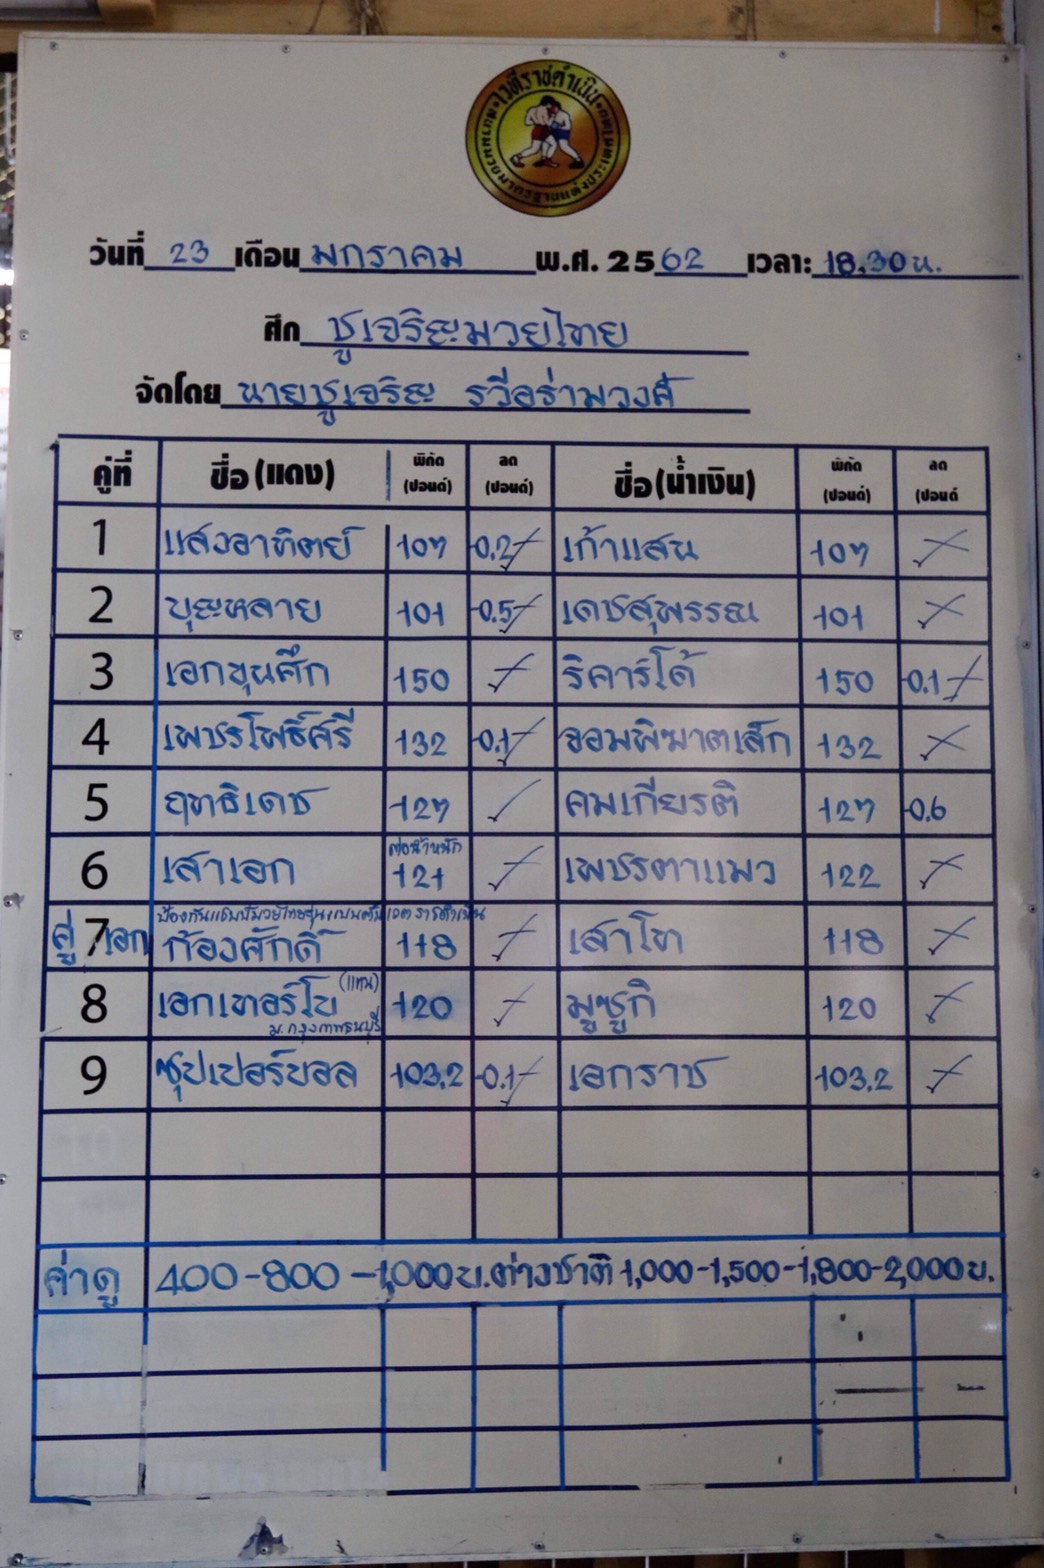 เวทีราชดำเนิน
วันที่ 23 เดือน มกราคม พ.ศ. 2562 เวลา: 18.30 น.
ศึก ชูเจริญมวยไทย
จัดโดย นายชูเจริญ รวีอร่ามวงศ์
คู่ที่ ชื่อ (แดง) พิกัด (ปอนด์) ลด (ปอนด์) ชื่อ (น้ำเงิน) พิกัด (ปอนด์) ลด (ปอนด์
1 แสงอาทิตย์ 107 0.2 เก้าแสน 107
2 บุญหลาย 101 0.5 เดชสุพรรณ 101
3 เอกขุนศึก 150 ริคาร์โด้ 150 0.1
4 เพชรโพธิ์ศรี 132 0.1 จอมพิฆาตเล็ก 132
5 ฤทธิเดช 127 คมเกียรติ 127 0.6
6 เสาเอก ต่อน้ำหนัก 121 เพชรตาแมว 122
ป้องกันแชมป์มวยไทยรุ่น เวทีราชดำเนิน
คู่ 7 เอก ก้องศักดิ์ 118 เสาโท 118
8 เอกเทอร์โบ (แทน) ม.กรุงเทพธนบุรี 120 มูซูกิ 120
9 ซุปเปอร์บอล 103.2 0.1 เอกราช 103.2
ค่าดู 400-800-1,000 บ. ต่างชาติ 1,000-1,500-1,800-2,000 บ.